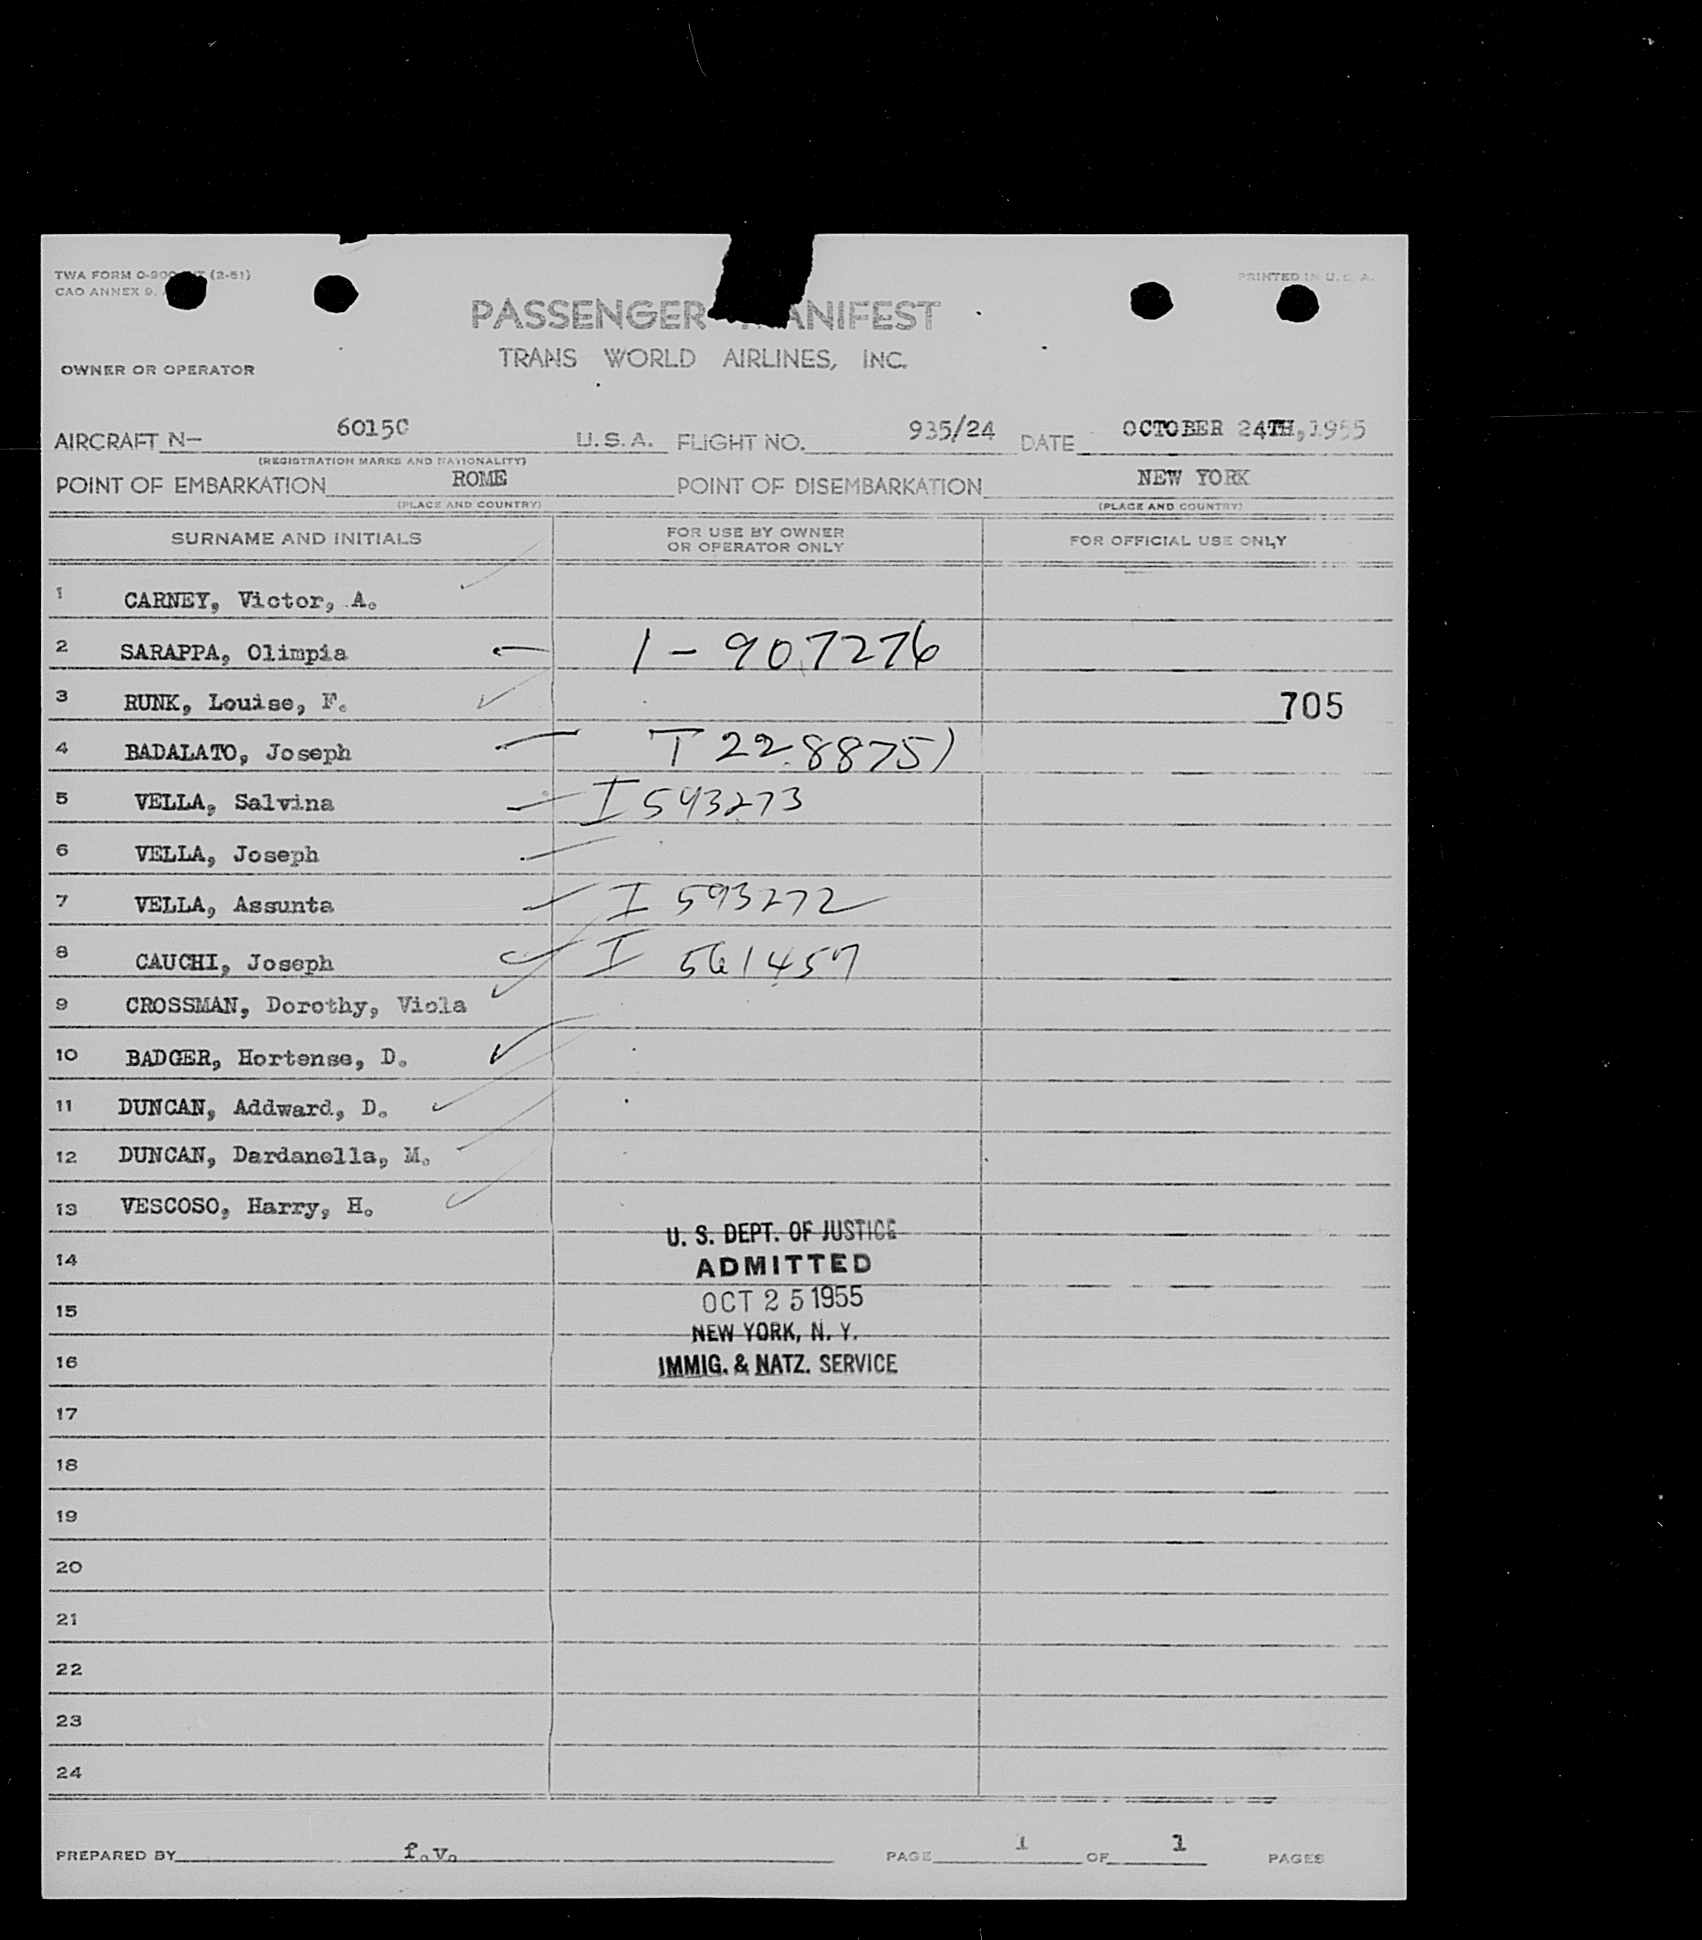 TWA FORM O-900 (2-51)
CAO ANNEX 9.
PRINTED IN U. S. A.
PASSENGER MANIFEST
TRANS WORLD AIRLINES, INC.
OWNER OR OPERATOR
AIRCRAFT N- 6015C U. S. A. FLIGHT NO. 935/24 DATE OCTOBER 24TH, 1955
(REGISTRATION MARKS AND NATIONALITY)
POINT OF EMBARKATION ROME POINT OF DISEMBARKATION NEW YORK
(PLACE AND COUNTRY) (PLACE AND COUNTRY)
SURNAME AND INITIALS FOR USE BY OWNER OR OPERATOR ONLY FOR OFFICIAL USE ONLY
1 CARNEY, Victor, A.
2 SARAPPA, Olimpia 1-907276
3 RUNK, Louise, F. 705
4 BADALATO, Joseph T 2288751
5 VELLA, Salvina I 593273
6 VELLA, Joseph
7 VELLA, Assunta I 593272
8 CAUCHI, Joseph I 561457
9 CROSSMAN, Dorothy, Viola
10 BADGER, Hortense, D.
11 DUNCAN, Addward, D.
12 DUNCAN, Dardanella, M.
13 VESCOSO, Harry, H.
U. S. DEPT. OF JUSTICE
14
ADMITTED
15
OCT 25 1955
NEW YORK, N. Y.
16
IMMIG. & NATZ. SERVICE
17
18
19
20
21
22
23
24
PREPARED BY f.v. PAGE 1 OF 1 PAGES